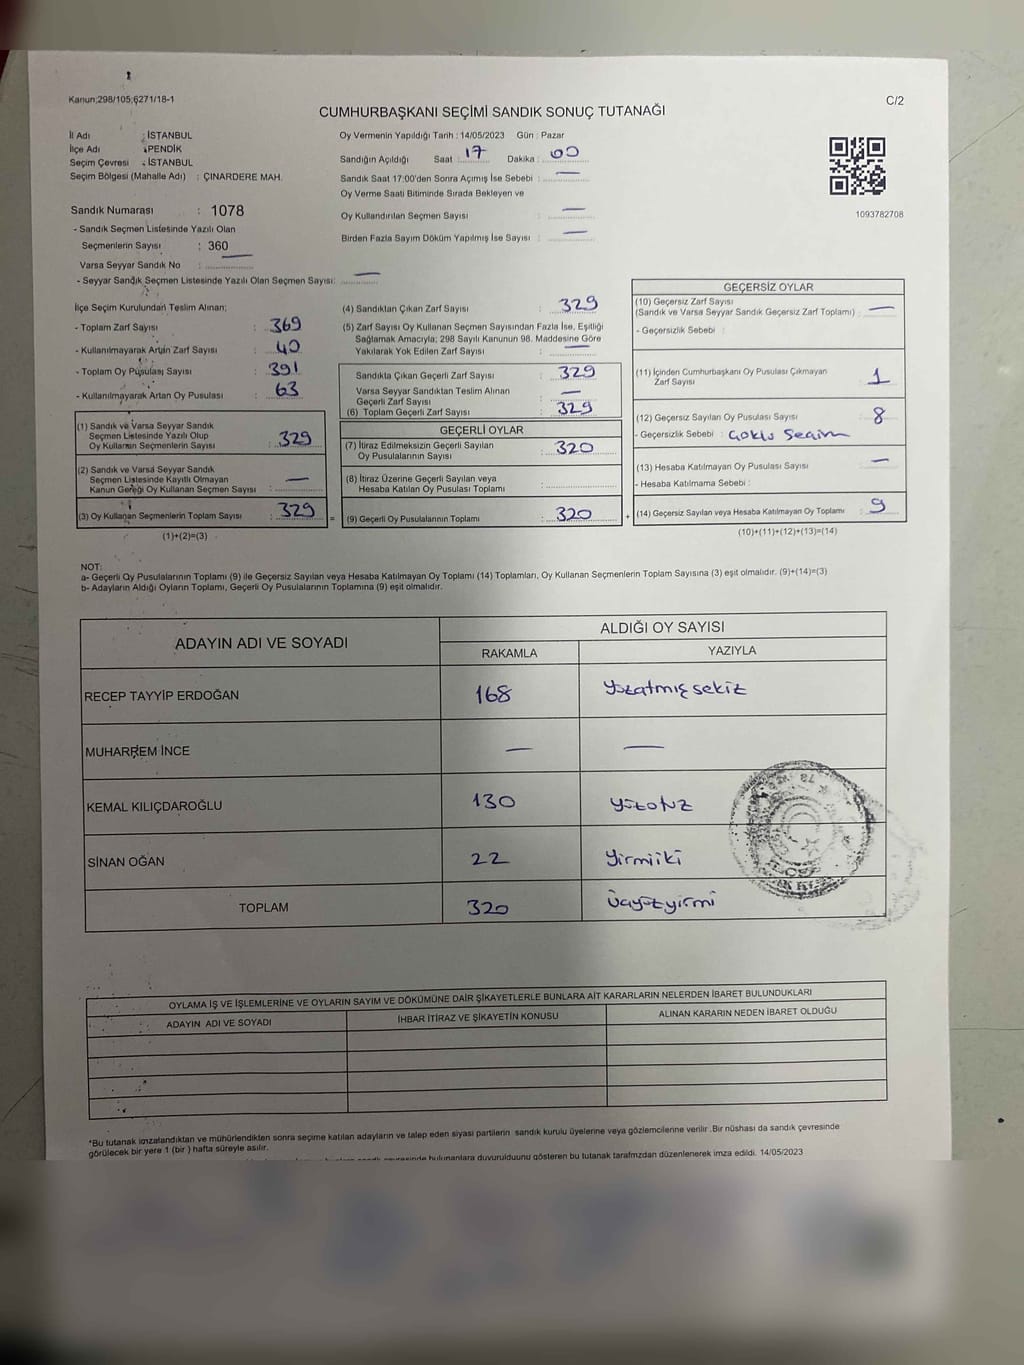 Kanun;298/105;6271/18-1
C/2
CUMHURBAŞKANI SEÇİMİ SANDIK SONUÇ TUTANAĞI
İl Adı : İSTANBUL
İlçe Adı : PENDİK
Seçim Çevresi : İSTANBUL
Seçim Bölgesi (Mahalle Adı) : ÇINARDERE MAH.
Sandık Numarası : 1078
- Sandık Seçmen Listesinde Yazılı Olan
Seçmenlerin Sayısı : 360
Varsa Seyyar Sandık No : —
- Seyyar Sandık Seçmen Listesinde Yazılı Olan Seçmen Sayısı: —
Oy Vermenin Yapıldığı Tarih : 14/05/2023 Gün : Pazar
Sandığın Açıldığı Saat : 17 Dakika : 00
Sandık Saat 17:00'den Sonra Açımış İse Sebebi : —
Oy Verme Saati Bitiminde Sırada Bekleyen ve
Oy Kullandırılan Seçmen Sayısı : —
Birden Fazla Sayım Döküm Yapılmış İse Sayısı : —
1093782708
İlçe Seçim Kurulundan Teslim Alınan;
- Toplam Zarf Sayısı : 369
- Kullanılmayarak Artan Zarf Sayısı : 40
- Toplam Oy Pusulası Sayısı : 391
- Kullanılmayarak Artan Oy Pusulası : 63
(1) Sandık ve Varsa Seyyar Sandık
Seçmen Listesinde Yazılı Olup
Oy Kullanan Seçmenlerin Sayısı : 329
(2) Sandık ve Varsa Seyyar Sandık
Seçmen Listesinde Kayıtlı Olmayan
Kanun Gereği Oy Kullanan Seçmen Sayısı : —
(3) Oy Kullanan Seçmenlerin Toplam Sayısı : 329
(1)+(2)=(3)
(4) Sandıktan Çıkan Zarf Sayısı : 329
(5) Zarf Sayısı Oy Kullanan Seçmen Sayısından Fazla İse, Eşitliği
Sağlamak Amacıyla; 298 Sayılı Kanunun 98. Maddesine Göre
Yakılarak Yok Edilen Zarf Sayısı : —
Sandıkta Çıkan Geçerli Zarf Sayısı : 329
Varsa Seyyar Sandıktan Teslim Alınan
Geçerli Zarf Sayısı : —
(6) Toplam Geçerli Zarf Sayısı : 329
GEÇERLİ OYLAR
(7) İtiraz Edilmeksizin Geçerli Sayılan
Oy Pusulalarının Sayısı : 320
(8) İtiraz Üzerine Geçerli Sayılan veya
Hesaba Katılan Oy Pusulası Toplamı :
= (9) Geçerli Oy Pusulalarının Toplamı : 320 +
GEÇERSİZ OYLAR
(10) Geçersiz Zarf Sayısı
(Sandık ve Varsa Seyyar Sandık Geçersiz Zarf Toplamı) : —
- Geçersizlik Sebebi :
(11) İçinden Cumhurbaşkanı Oy Pusulası Çıkmayan
Zarf Sayısı : 1
(12) Geçersiz Sayılan Oy Pusulası Sayısı : 8
- Geçersizlik Sebebi : Çoklu Seçim
(13) Hesaba Katılmayan Oy Pusulası Sayısı : —
- Hesaba Katılmama Sebebi :
(14) Geçersiz Sayılan veya Hesaba Katılmayan Oy Toplamı : 9
(10)+(11)+(12)+(13)=(14)
NOT:
a- Geçerli Oy Pusulalarının Toplamı (9) ile Geçersiz Sayılan veya Hesaba Katılmayan Oy Toplamı (14) Toplamları, Oy Kullanan Seçmenlerin Toplam Sayısına (3) eşit olmalıdır. (9)+(14)=(3)
b- Adayların Aldığı Oyların Toplamı, Geçerli Oy Pusulalarının Toplamına (9) eşit olmalıdır.
ADAYIN ADI VE SOYADI
ALDIĞI OY SAYISI
RAKAMLA YAZIYLA
RECEP TAYYİP ERDOĞAN 168 Yüzatmışsekiz
MUHARREM İNCE — —
KEMAL KILIÇDAROĞLU 130 Yüzotuz
SİNAN OĞAN 22 Yirmiiki
TOPLAM 320 Üçyüzyirmi
OYLAMA İŞ VE İŞLEMLERİNE VE OYLARIN SAYIM VE DÖKÜMÜNE DAİR ŞİKAYETLERLE BUNLARA AİT KARARLARIN NELERDEN İBARET BULUNDUKLARI
ADAYIN ADI VE SOYADI İHBAR İTİRAZ VE ŞİKAYETİN KONUSU ALINAN KARARIN NEDEN İBARET OLDUĞU
*Bu tutanak imzalandıktan ve mühürlendikten sonra seçime katılan adayların ve talep eden siyasi partilerin sandık kurulu üyelerine veya gözlemcilerine verilir .Bir nüshası da sandık çevresinde
görülecek bir yere 1 (bir ) hafta süreyle asılır.
bulunanlara duyurulduğunu gösteren bu tutanak tarafımızdan düzenlenerek imza edildi. 14/05/2023